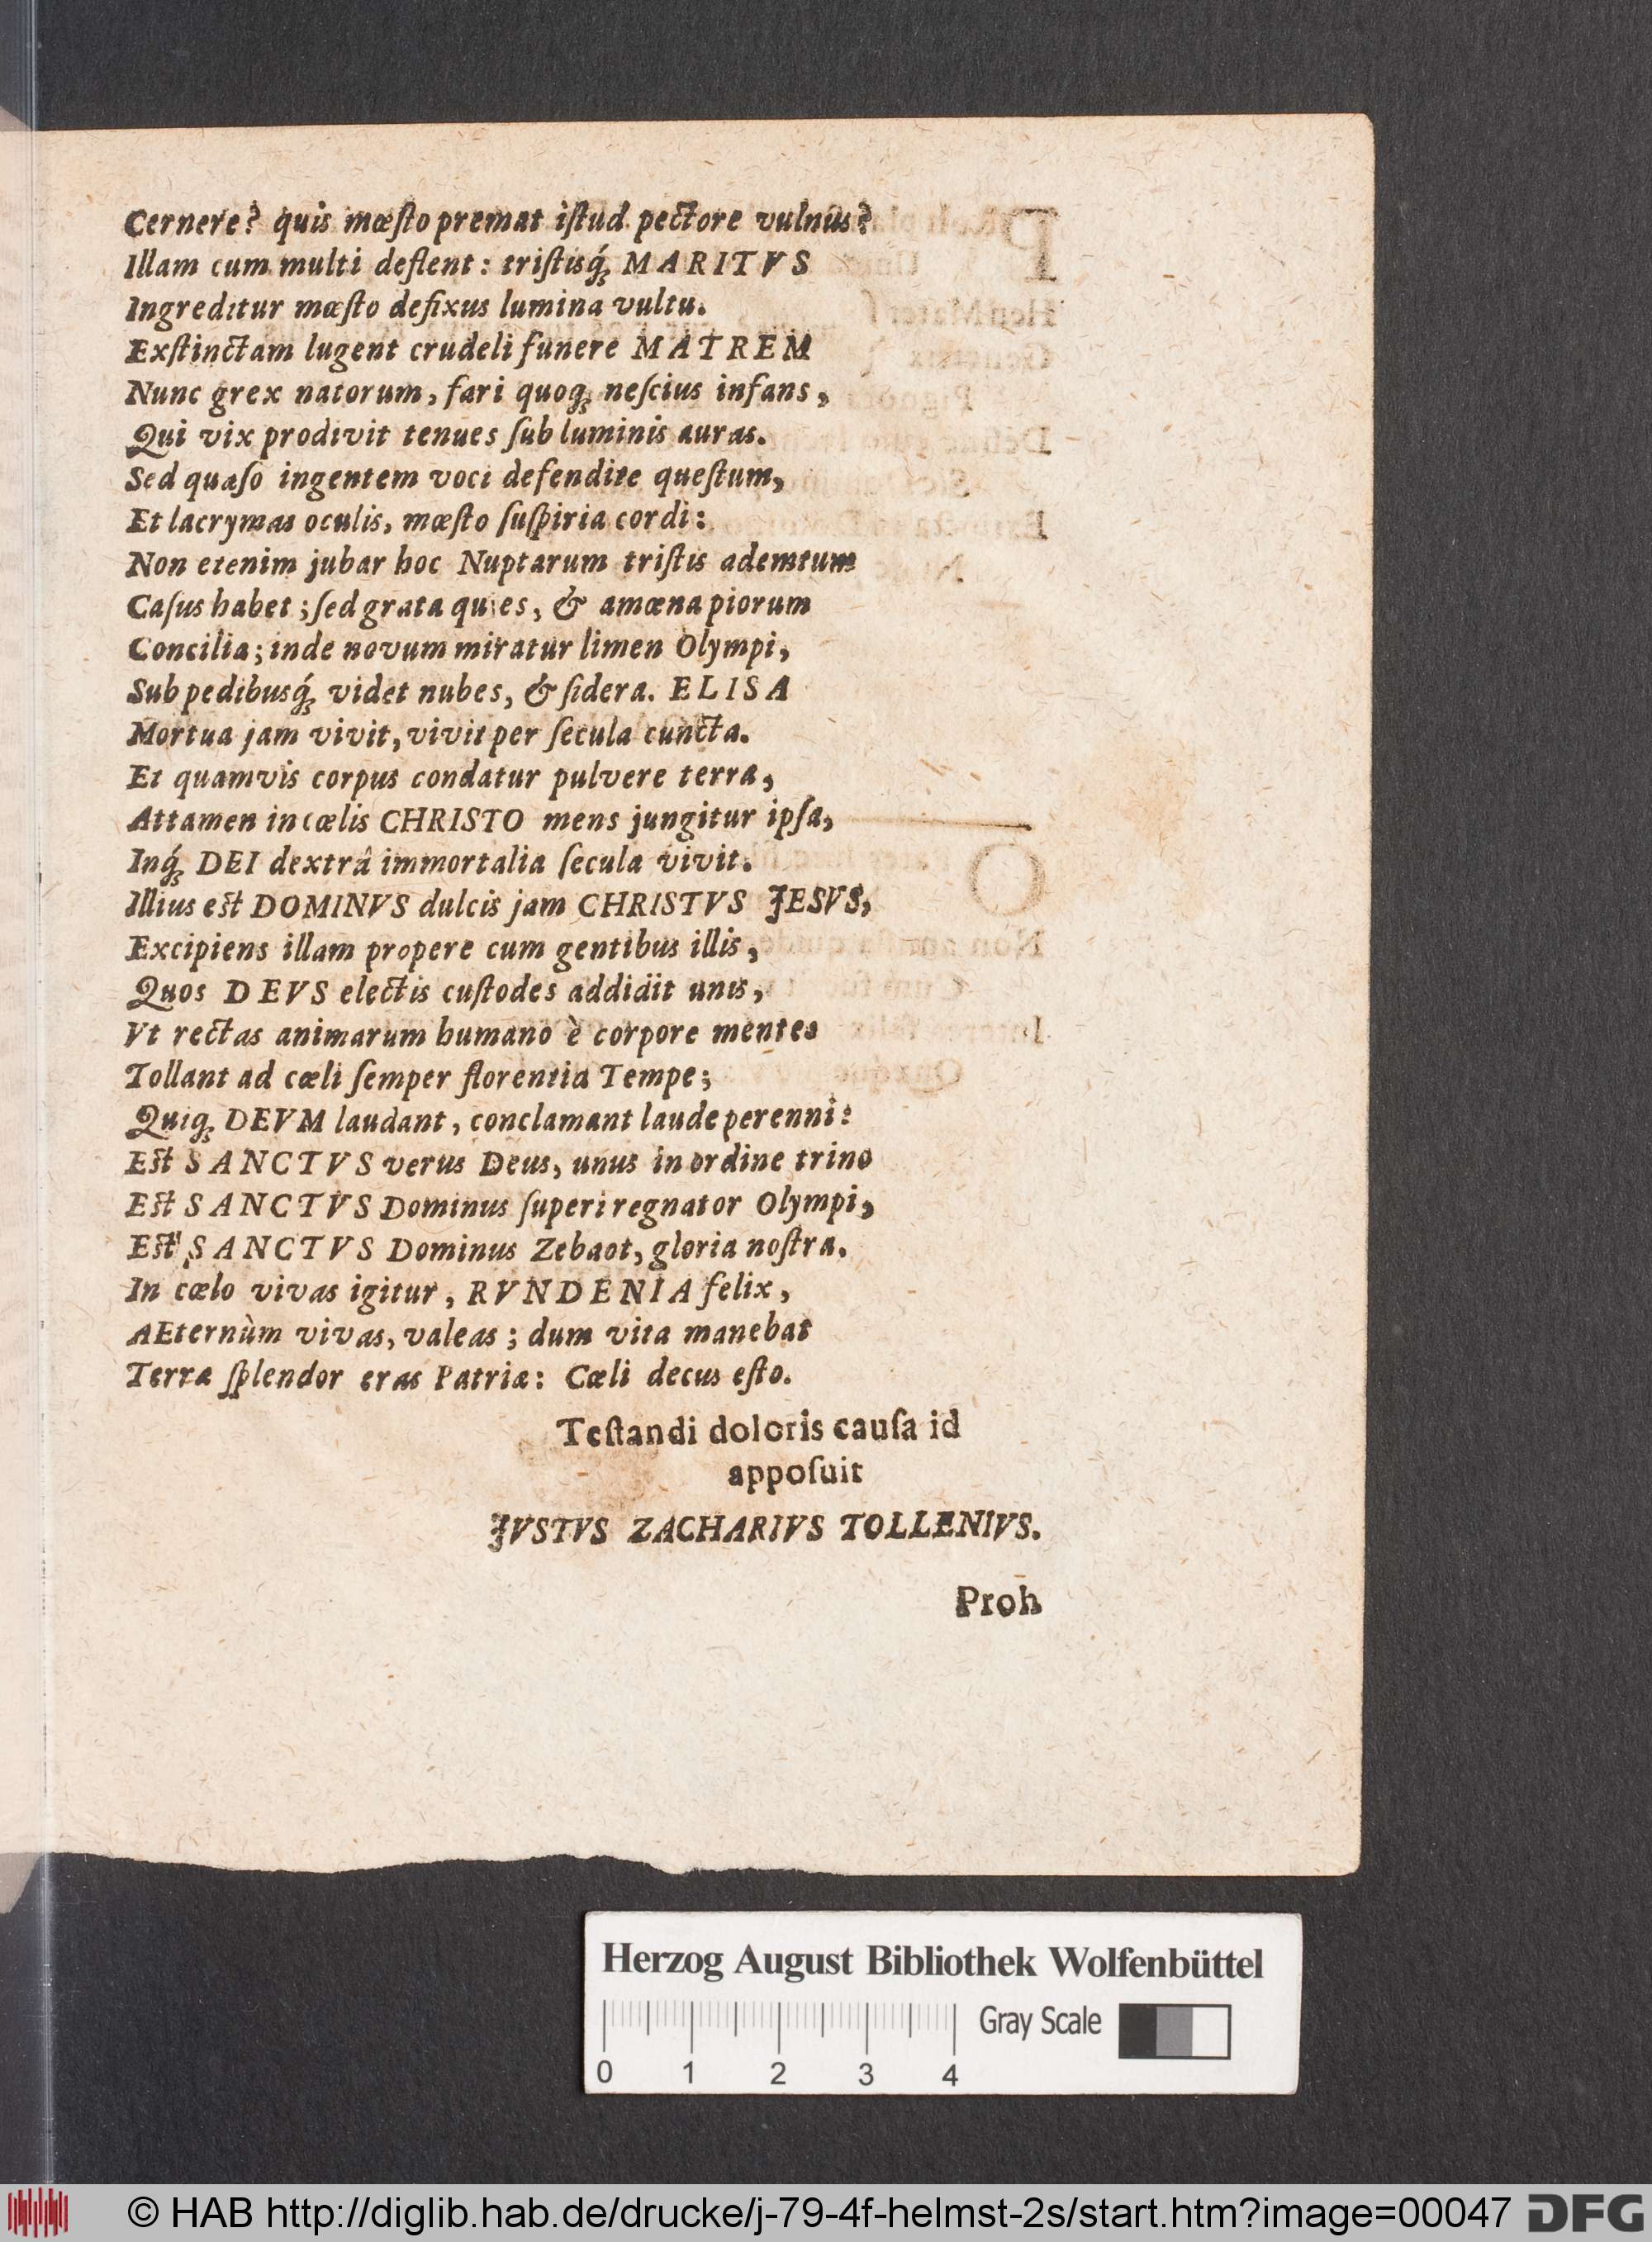 Cernere? quis mœſto premat iſtud pectore vulnus?
Illam cum multi deflent: triſtisq́; MARITVS
Ingreditur mœſto defixus lumina vultu.
Exſtinctam lugent crudeli funere MATREM
Nunc grex natorum, fari quoq; neſcius infans,
Qui vix prodivit tenues ſub luminis auras.
Sed quæſo ingentem voci defendite queſtum,
Et lacrymas oculis, mœſto ſuſpiria cordi:
Non etenim jubar hoc Nuptarum triſtis ademtum
Caſus habet; ſed grata quies, & amœna piorum
Concilia; inde novum miratur limen Olympi,
Sub pedibusq́; videt nubes, & ſidera. ELISA
Mortua jam vivit, vivit per ſecula cuncta.
Et quamvis corpus condatur pulvere terra,
Attamen in cœlis CHRISTO mens jungitur ipſa,
Inq́; DEI dextrâ immortalia ſecula vivit.
Illius eſt DOMINVS dulcis jam CHRISTVS JESVS,
Excipiens illam propere cum gentibus illis,
Quos DEVS electis cuſtodes addidit unis,
Vt rectas animarum humano è corpore mentes
Tollant ad cœli ſemper florentia Tempe;
Quiq; DEVM laudant, conclamant laude perenni:
Eſt SANCTVS verus Deus, unus in ordine trino
Eſt SANCTVS Dominus ſuperi regnator Olympi,
Eſt SANCTVS Dominus Zebaot, gloria noſtra.
In cœlo vivas igitur, RVNDENIA felix,
AEternùm vivas, valeas; dum vita manebat
Terra ſplendor eras Patriæ: Cœli decus eſto.
Teſtandi doloris cauſa id
appoſuit
JVSTVS ZACHARIVS TOLLENIVS.
Proh
Herzog August Bibliothek Wolfenbüttel
Gray Scale
0 1 2 3 4
© HAB http://diglib.hab.de/drucke/j-79-4f-helmst-2s/start.htm?image=00047 DFG